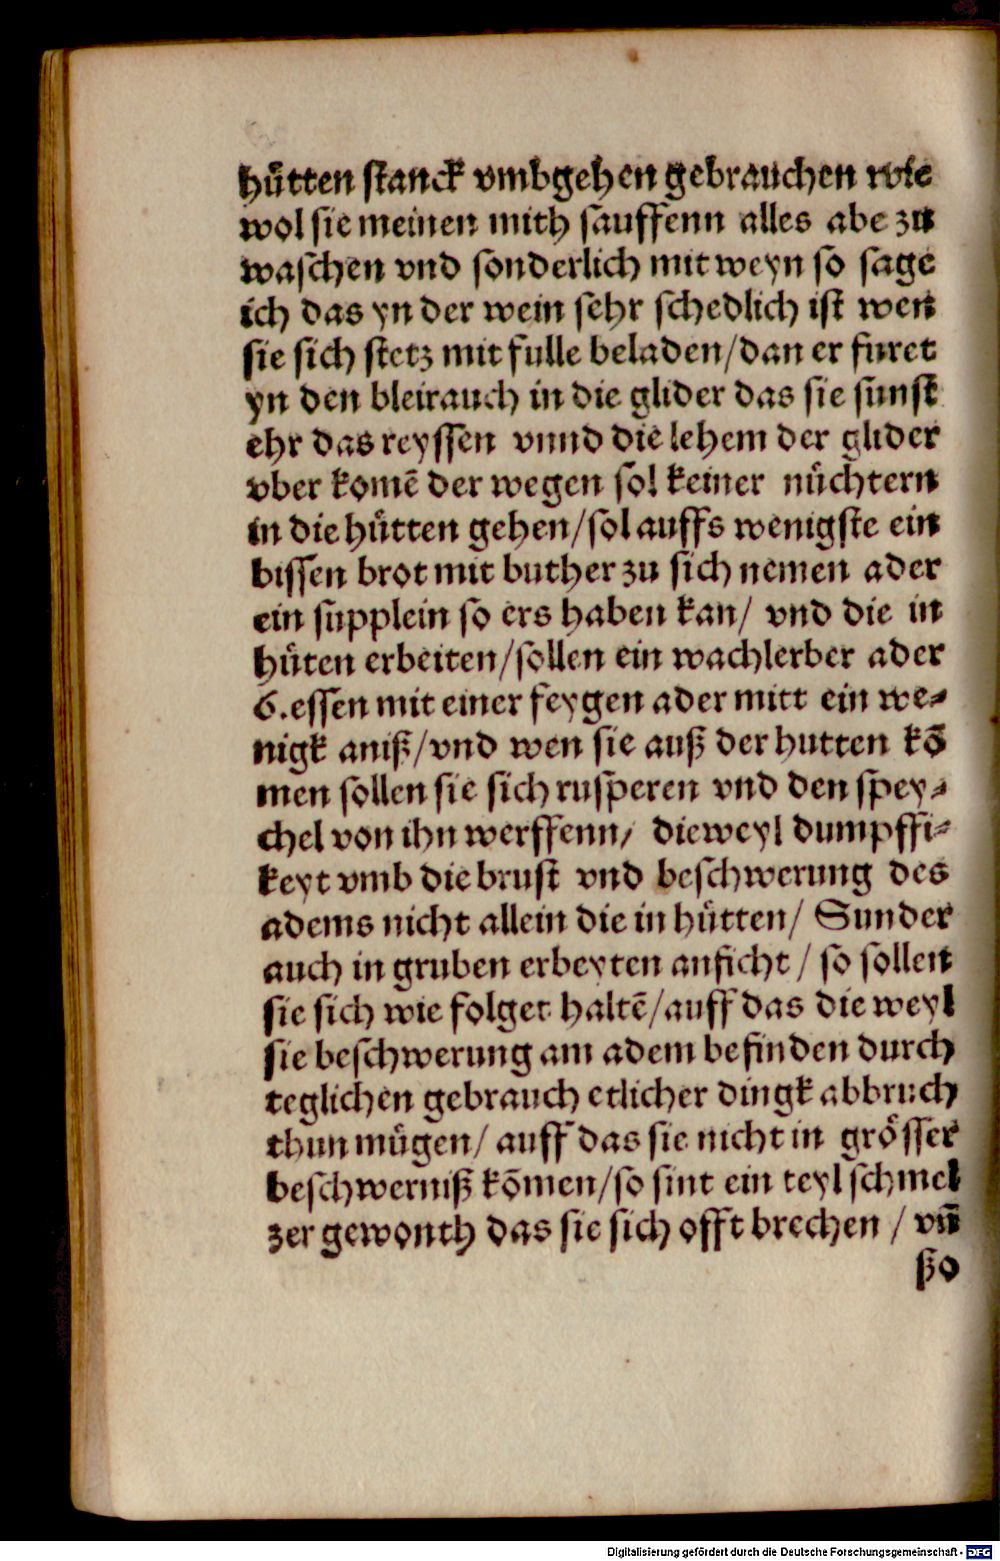 hůtten stanck vmbgehen gebrauchen wie
wol sie meinen mith sauffenn alles abe zu
waschen vnd sonderlich mit weyn so sage
ich das yn der wein sehr schedlich ist wen
sie sich stetz mit fulle beladen/dan er furet
yn den bleirauch in die glider das sie sunst
ehr das reyssen vnnd die lehem der glider
vber komē der wegen sol keiner nůchtern
in die hůtten gehen/sol auffs wenigste ein
bissen brot mit buther zu sich nemen ader
ein supplein so ers haben kan/ vnd die in
hůten erbeiten/sollen ein wachlerber ader
6.essen mit einer feygen ader mitt ein we⸗
nigk aniß/vnd wen sie auß der hutten kō
men sollen sie sich rusperen vnd den spey⸗
chel von ihn werffenn/ dieweyl dumpffi⸗
keyt vmb die brust vnd beschwerung des
adems nicht allein die in hůtten/ Sunder
auch in gruben erbeyten anficht/ so sollen
sie sich wie folget haltē/auff das die weyl
sie beschwerung am adem befinden durch
teglichen gebrauch etlicher dingk abbruch
thun můgen/ auff das sie nicht in grösser
beschwerniß kōmen/so sint ein teyl schmel
zer gewonth das sie sich offt brechen/ vñ
ßo
Digitalisierung gefördert durch die Deutsche Forschungsgemeinschaft - DFG